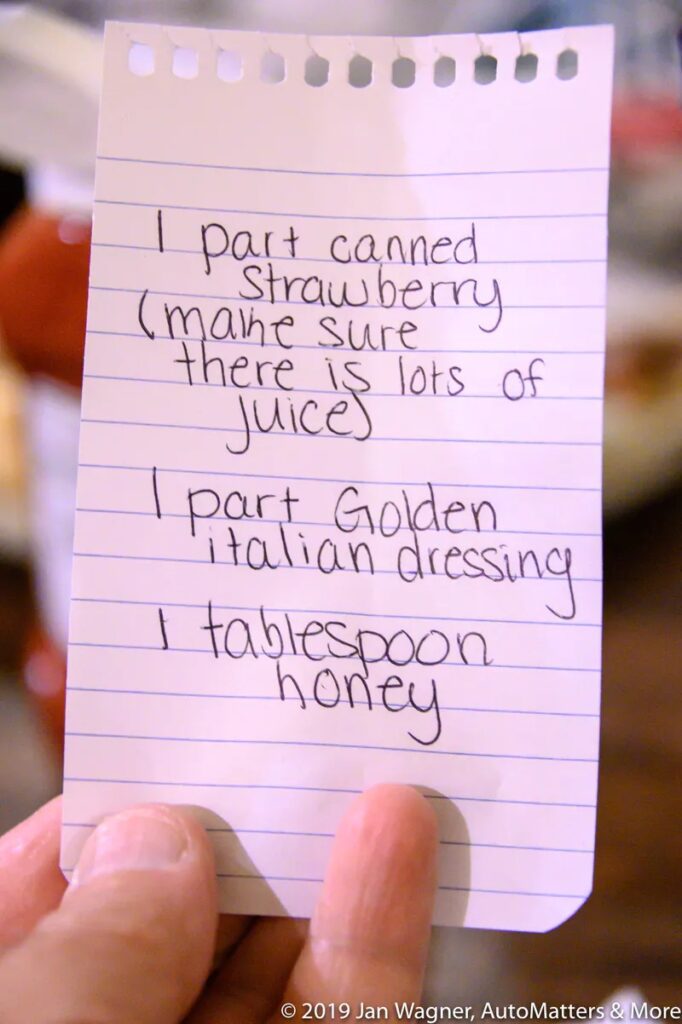 1 part canned
strawberry
(make sure
there is lots of
juice)
1 part Golden
italian dressing
1 tablespoon
honey
© 2019 Jan Wagner, AutoMatters & More